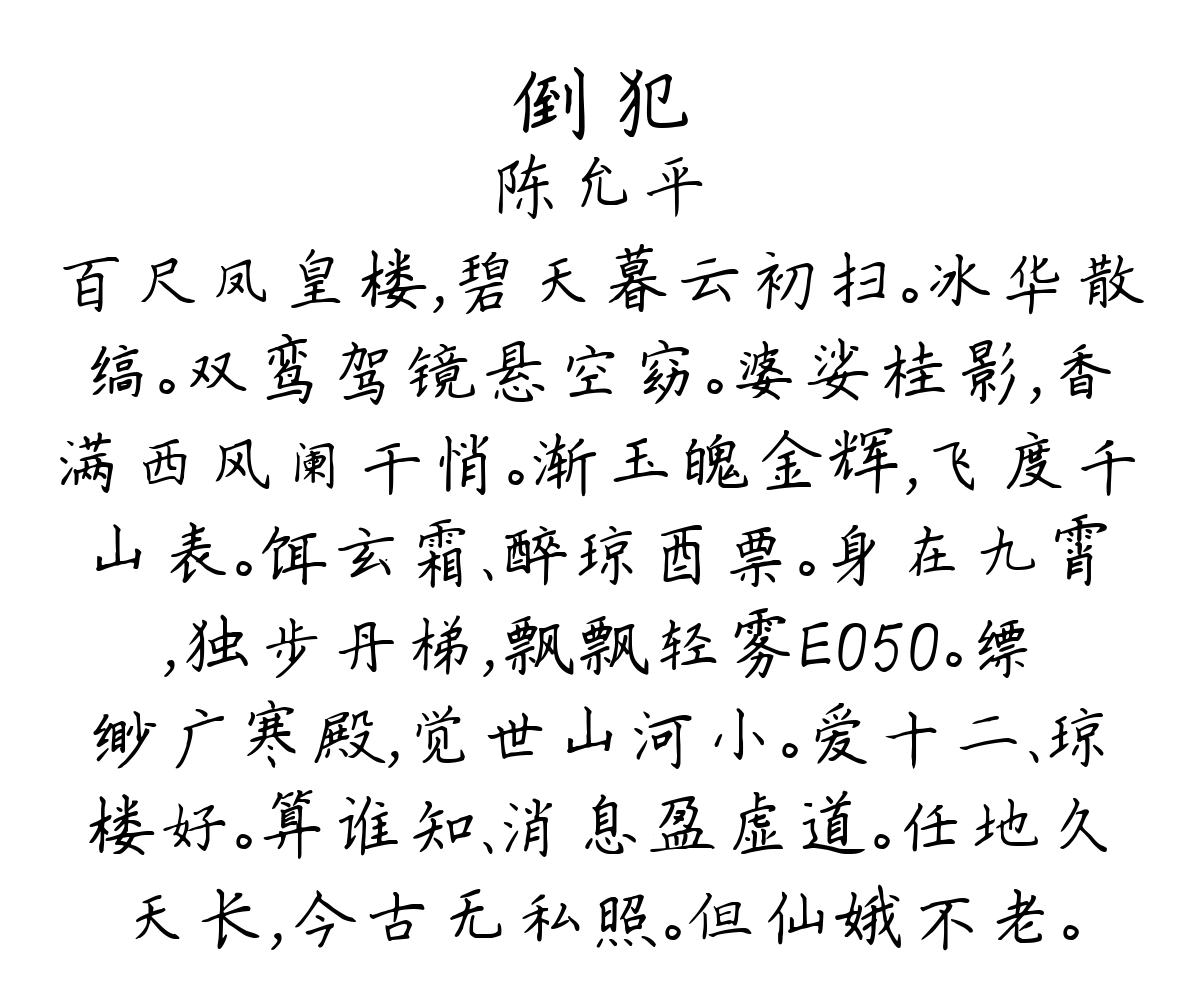 倒犯
陈允平
百尺凤皇楼,碧天暮云初扫。冰华散
缟。双鸾驾镜悬空窈。婆娑桂影,香
满西风阑干悄。渐玉魄金辉,飞度千
山表。饵玄霜、醉琼酉票。身在九霄
,独步丹梯,飘飘轻雾E050。缥
缈广寒殿,觉世山河小。爱十二、琼
楼好。算谁知、消息盈虚道。任地久
天长,今古无私照。但仙娥不老。